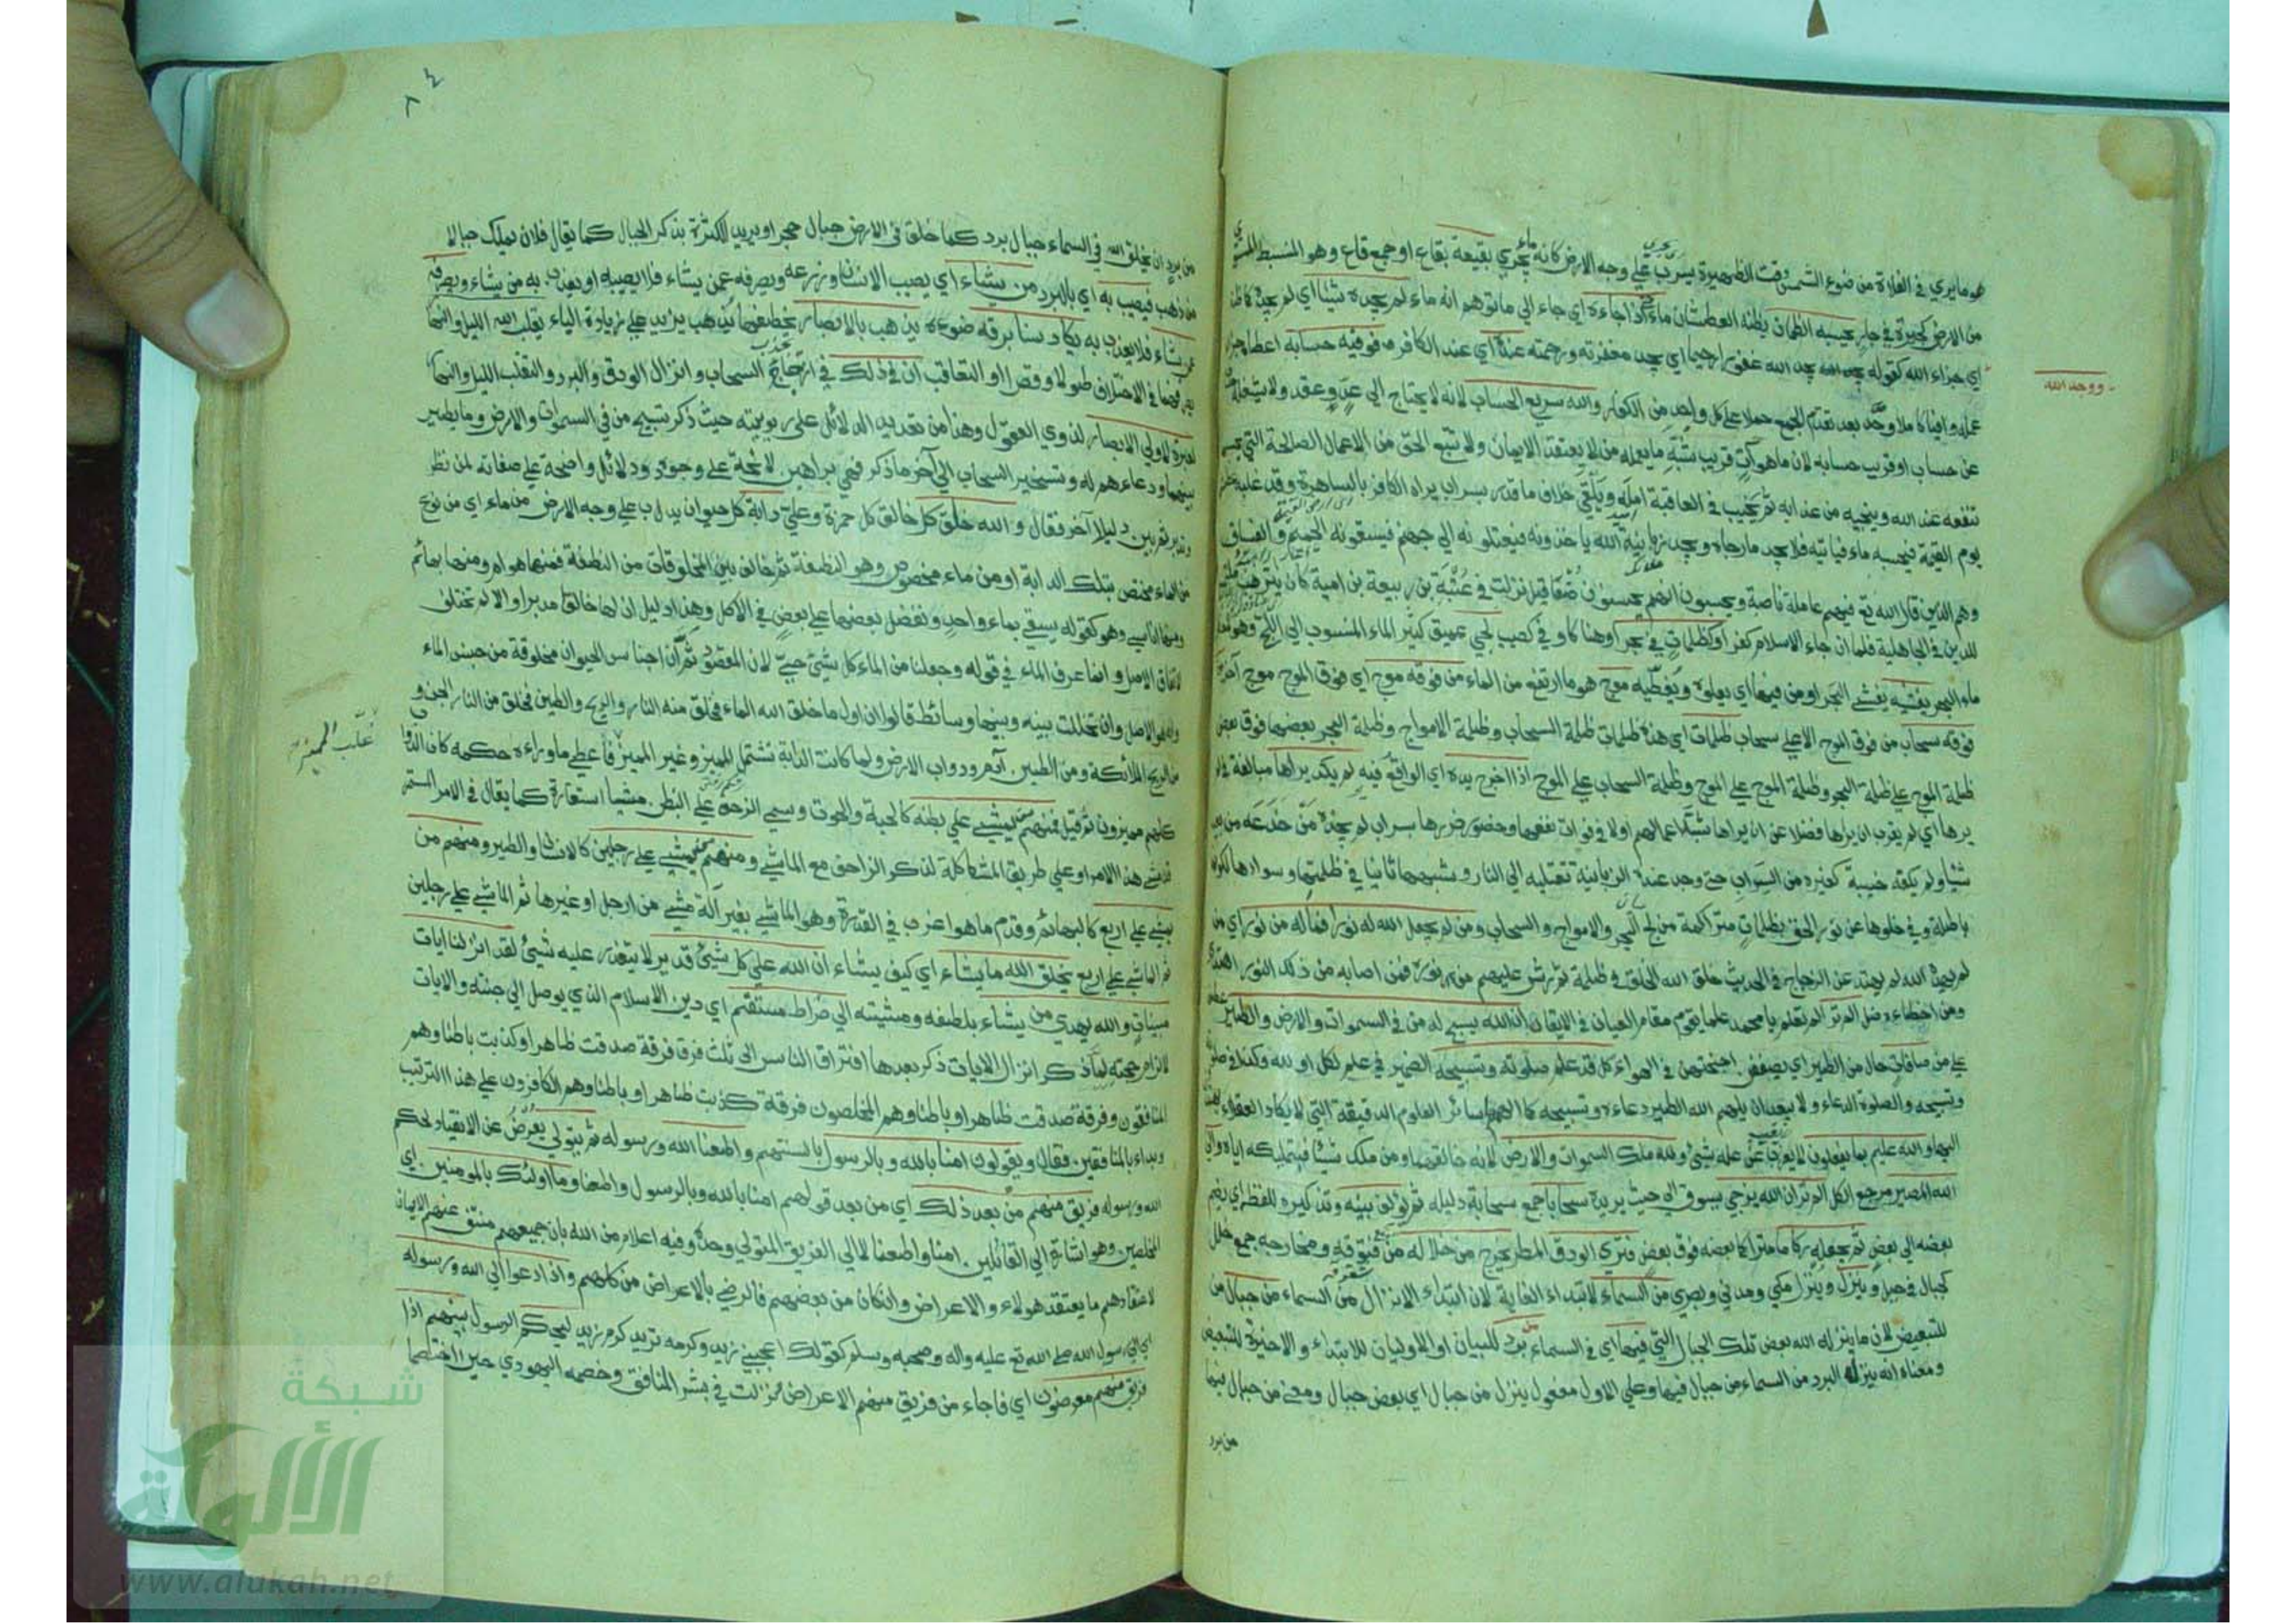 هو ما يري في الفلاة من ضوء الشمس وقت الظهيرة يسرب علي وجه الارض كانه ماء يجري بقيعة بقاع او جمع قاع وهو المنبسط المستوي
من الارض كجيرة في جار يحسبه الظمان يظنه العطشان ماء حتي اذا جاءه اي جاء الي ما توهم انه ماء لم يجده شيئا اي لم يجده كما ظنه
ووجد الله
اي جزاء الله كقوله يجد الله غفورا رحيما اي يجد مغفرته ورحمته عنده اي عند الكافر فوفيه حسابه اعطاه جزاء
عمله وافيا كاملا وحد بعد تقدم الجمع حملا علي كل واحد من الكفار والله سريع الحساب لانه لا يحتاج الي عد وعقد ولا يشغله
عن حساب او قريب حسابه لان ما هو آت قريب شبه ما يعمله من لا يعتقد الايمان ولا يتبع الحق من الاعمال الصالحة التي يحسب
تنفعه عند الله وينجيه من عذابه ثم يخيب في العاقبة امله ويلقي خلاف ما قدر بسراب يراه الكافر بالساهرة وقد غلبه عطش
يوم القيمة فيحسبه ماء فياتيه فلا يجد ما رجاه ويجد زبانية الله ياخذونه فيعتلونه الي جهنم فيسقونه الحميم والغساق
وهم الذين قال الله تع فيهم عاملة ناصبة ويحسبون انهم يحسنون صنعا قيل نزلت في عتبة بن ربيعة بن امية كان يترهب
للدين في الجاهلية فلما ان جاء الاسلام كفر او كظلمات في بحر او هنا كاو في كصيب لجي عميق كثير الماء المنسوب الي اللج وهو معظم
ماء البحر يغشيه يغشي البحر او من فيها اي يعلوه ويغطيه موج هو ما ارتفع من الماء من فوقه موج اي فوق الموج موج آخر من
فوقه سحاب من فوق الموج الاعلي سحاب ظلمات اي هذه ظلمات ظلمة السحاب وظلمة الامواج وظلمة البحر بعضها فوق بعض
ظلمة الموج علي ظلمة البحر وظلمة الموج علي الموج وظلمة السحاب علي الموج اذا اخرج يده اي الواقع فيه لم يكد يراها مبالغة في لم
يرها اي لم يقرب ان يراها فضلا عن ان يراها شبه اعمالهم اولا في فوات نفعها وحضور ضررها بسراب لم يجده من خدعه من بعيد
شيئا ولم يكفه خيبة كغيره من السراب حتي وجد عنده الزبانية تعتله الي النار وشبهها ثانيا في ظلمتها وسوادها لكونها
باطلة وفي خلوها عن نور الحق بظلمات متراكمة من لج البحر والامواج والسحاب ومن لم يجعل الله له نورا فما له من نور اي من
لم يهده الله لم يهتد عن الزجاج في الحديث خلق الله الخلق في ظلمة ثم رش عليهم من نوره فمن اصابه من ذلك النور اهتدي
ومن اخطاءه ضل الم تر الم تعلم يا محمد علما يقوم مقام العيان في الايقان ان الله يسبح له من في السموات والارض والطير
علي من صافات حال من الطير اي يصففن اجنحتهن في الهواء كل قد علم صلوته وتسبيحه الضمير في علم لكل او لله وكذا في صلوته
وتسبيحه والصلوة الدعاء ولا يبعد ان يلهم الله الطير دعاءه وتسبيحه كما الهمها سائر العلوم الدقيقة التي لا يكاد العقلاء يهتدون
اليها والله عليم بما يفعلون لا يعزب عن علمه شيئ ولله ملك السموات والارض لانه خالقهما ومن ملك شيئا فبتمليكه اياه والي
الله المصير مرجع الكل الم تر ان الله يزجي يسوق الي حيث يريد سحابا جمع سحابة دليله ثم يؤلف بينه وتذكيره للفظ اي يضم
بعضه الي بعض ثم يجعله ركاما متراكما بعضه فوق بعض فتري الودق المطر يخرج من خلاله من فتوقه ومخارجه جمع خلل
كجبال في جبل وينزل وينزل مكي ومدني وبصري من السماء لابتداء الغاية لان ابتداء الانزال من السماء من جبال من
للتبعيض لان ما ينزله الله بعض تلك الجبال التي فيها اي في السماء من برد للبيان او الاوليان للابتداء والاخيرة للتبعيض
ومعناه انه ينزل البرد من السماء من جبال فيها وعلي الاول مفعول ينزل من جبال اي بعض جبال ومعني من جبال فيها
من برد
٨٤
من برد ان يخلق الله في السماء جبال برد كما خلق في الارض جبال حجر او يريد الكثرة بذكر الجبال كما يقال فلان يملك جبالا
من ذهب فيصيب به اي بالبرد من يشاء اي يصيب الانسان وزرعه ويصرفه عمن يشاء فلا يصيبه او يعذب به من يشاء ويصرفه
عن يشاء فلا يعذب به يكاد سنا برقه ضوءه يذهب بالابصار يخطفها يذهب يزيد علي زيادة الياء يقلب الله الليل والنهار
يصرفهما في الاختلاف طولا وقصرا او التعاقب ان في ذلك في ازجاء السحاب وانزال الودق والبرد والتقلب الليل والنهار
لعبرة لاولي الابصار لذوي العقول وهذا من تعديد الدلائل علي ربوبيته حيث ذكر تسبيح من في السموات والارض وما يطير
بينهما ودعاءهم له وتسخير السحاب الي آخر ما ذكر فهي براهين لائحة علي وجوده ودلائل واضحة علي صفاته لمن نظر
وتدبر ثم بين دليلا آخر فقال والله خلق كل خالق كل حمزة وعلي دابة كل حيوان يدب علي وجه الارض من ماء اي من نوع
من الماء مختص بتلك الدابة او من ماء مخصوص وهو النطفة ثم خالف بين المخلوقات من النطفة فمنها هوام ومنها بهائم
ومنها اناسي وهو كقوله يسقي بماء واحد ونفضل بعضها علي بعض في الاكل وهذا دليل ان لها خالقا مدبرا والا لم تختلف
لاتفاق الاصل وانما عرف الماء في قوله وجعلنا من الماء كل شيئ حي لان المقصود ثم ان اجناس الحيوان مخلوقة من جنس الماء
وانه هو الاصل وان تخللت بينه وبينها وسائط قالوا ان اول ما خلق الله الماء فخلق منه النار والريح والطين فخلق من النار الجن و
من الريح الملائكة ومن الطين آدم ودواب الارض ولما كانت الدابة تشتمل المميز وغير المميز فاعطي ما وراءه حكمه كان الدواب
غلب المميز
كلهم مميزون ثم قيل فمنهم من يمشي علي بطنه كالحية والحوت وسمي الزحف علي البطن مشيا استعارة كما يقال في الامر المستمر
قد مشي هذا الامر او علي طريق المشاكلة لذكر الزاحف مع الماشي ومنهم من يمشي علي رجلين كالانسان والطير ومنهم من
يمشي علي اربع كالبهائم وقدم ما هو اعرف في القدرة وهو الماشي بغير آلة مشي من ارجل او غيرها ثم الماشي علي رجلين
ثم الماشي علي اربع يخلق الله ما يشاء اي كيف يشاء ان الله علي كل شيئ قدير لا يتعذر عليه شيئ لقد انزلنا ايات
مبينات والله يهدي من يشاء بلطفه ومشيته الي صراط مستقيم اي دين الاسلام الذي يوصل الي جنته والايات
لالزام حجته لما ذكر انزال الايات ذكر بعدها افتراق الناس الي ثلث فرق فرقة صدقت ظاهرا وكذبت باطنا وهم
المنافقون وفرقة صدقت ظاهرا وباطنا وهم المخلصون فرقة كذبت ظاهرا وباطنا وهم الكافرون علي هذا الترتيب
وبداء بالمنافقين فقال ويقولون امنا بالله وبالرسول بالسنتهم واطعنا الله ورسوله ثم يتولي يعرض عن الانقياد لحكم
الله ورسوله فريق منهم من بعد ذلك اي من بعد قولهم امنا بالله وبالرسول واطعنا وما اولئك بالمومنين اي
المخلصين وهو اشارة الي القائلين امنا واطعنا لا الي الفريق المتولي وحده وفيه اعلام من الله بان جميعهم منتف عنهم الايمان
لاعتقادهم ما يعتقد هولاء والاعراض وان كان من بعضهم فالرضي بالاعراض من كلهم واذا دعوا الي الله ورسوله
اي الي رسول الله صلي الله تع عليه واله وصحبه وسلم كقولك اعجبني زيد وكرمه تريد كرم زيد ليحكم الرسول بينهم اذا
فريق منهم معرضون اي فاجاء من فريق منهم الاعراض نزلت في بشر المنافق وخصمه اليهودي حين اختصما
شبكة
الألوكة
www.alukah.net